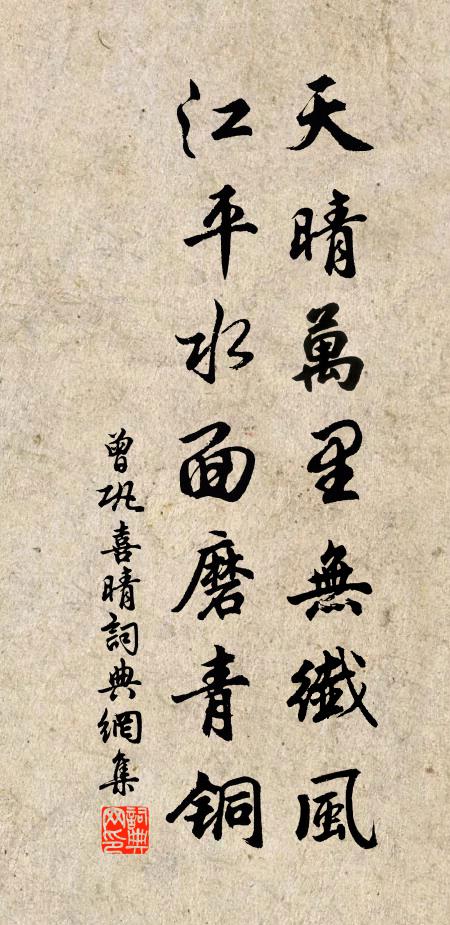 天晴萬里無纖風
江平水面磨青銅
曾巩喜晴詞典網集
詞典网印